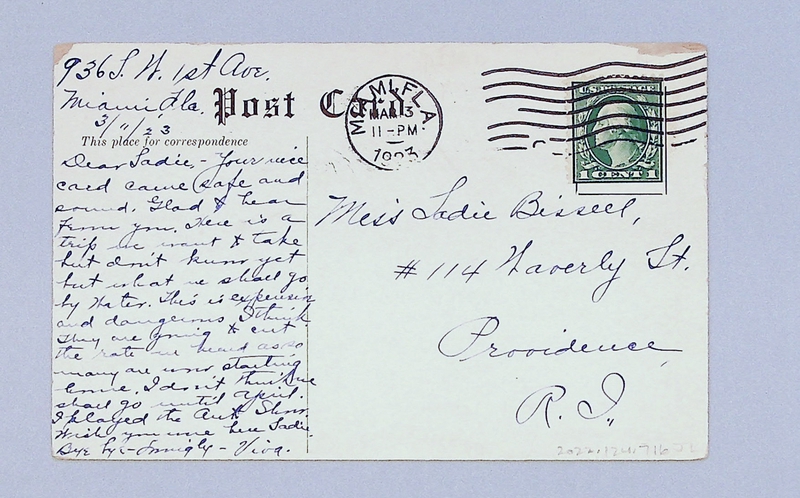 936 S. W. 1st Ave.
Miami, Fla.
3/11/23
Post Card
This place for correspondence
MIAMI, FLA.
MAR 3
11-PM
1923
U.S. POSTAGE
1 CENT 1
Dear Sadie, - Your nice
card came safe and
sound. Glad to hear
from you. Here is a
trip we want to take
but don't know yet
but what we shall go
by water. This is expensive
and dangerous I think.
They are going to cut
the rate we heard as so
many are now starting
home. I don't think we
shall go until April.
I played the Auto Show.
Wish you were here Sadie.
Bye bye - - Viva.
Miss Sadie Bissell,
# 114 Waverly St.
Providence,
R. I.,
2022.124.716